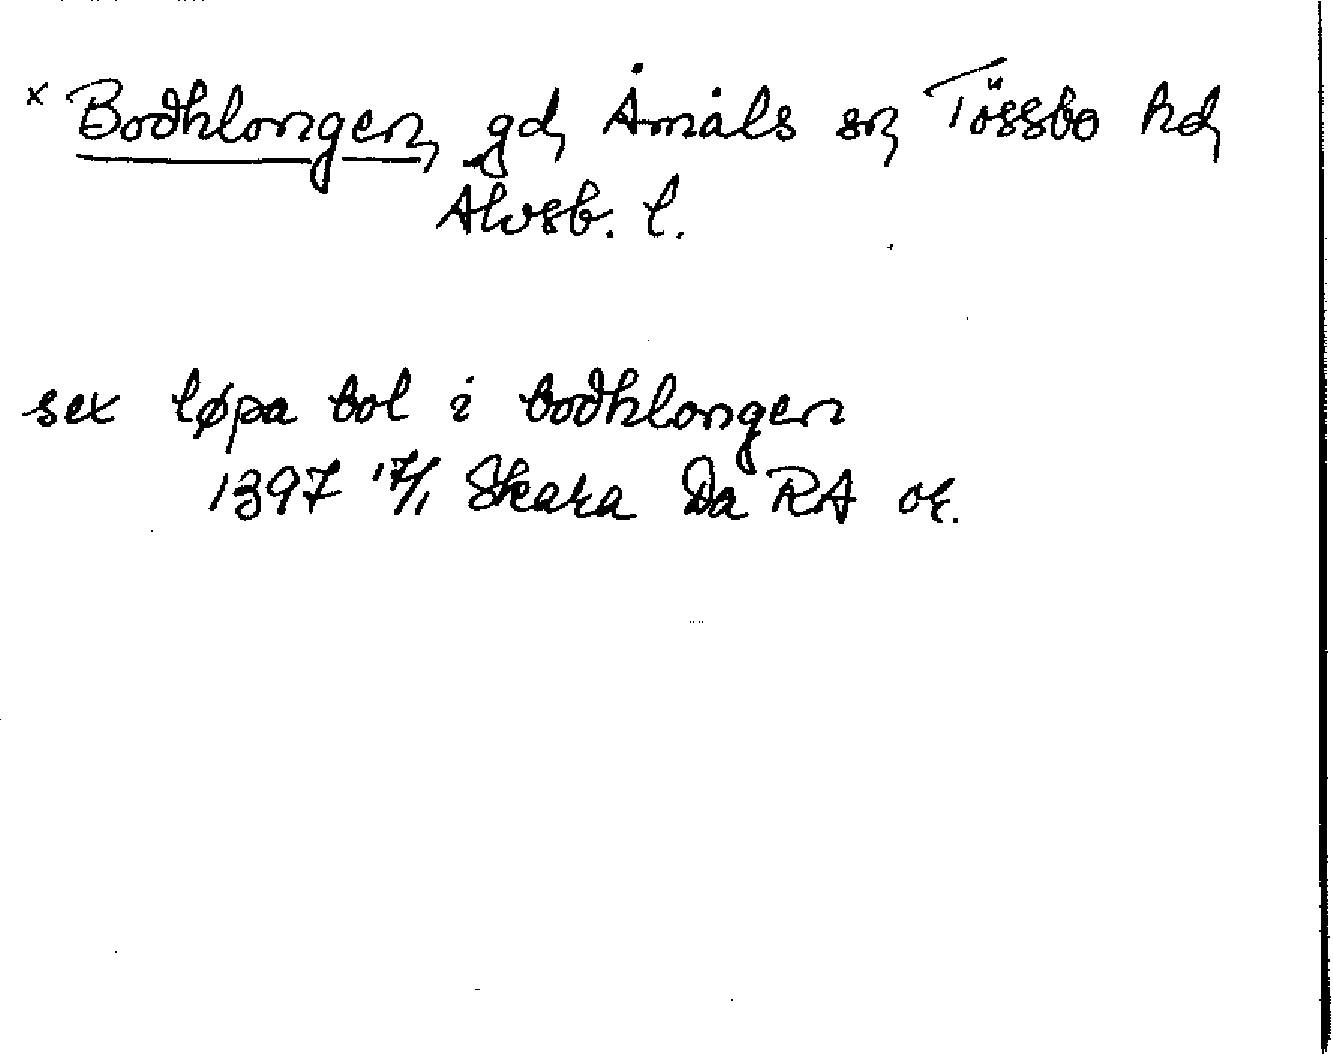 x Bodhlongen, gd, Åmåls sn, Tössbo hd,
Alvsb. l.
sex løpa bol i bodhlongen
1397 17/1 Skara Da RA or.